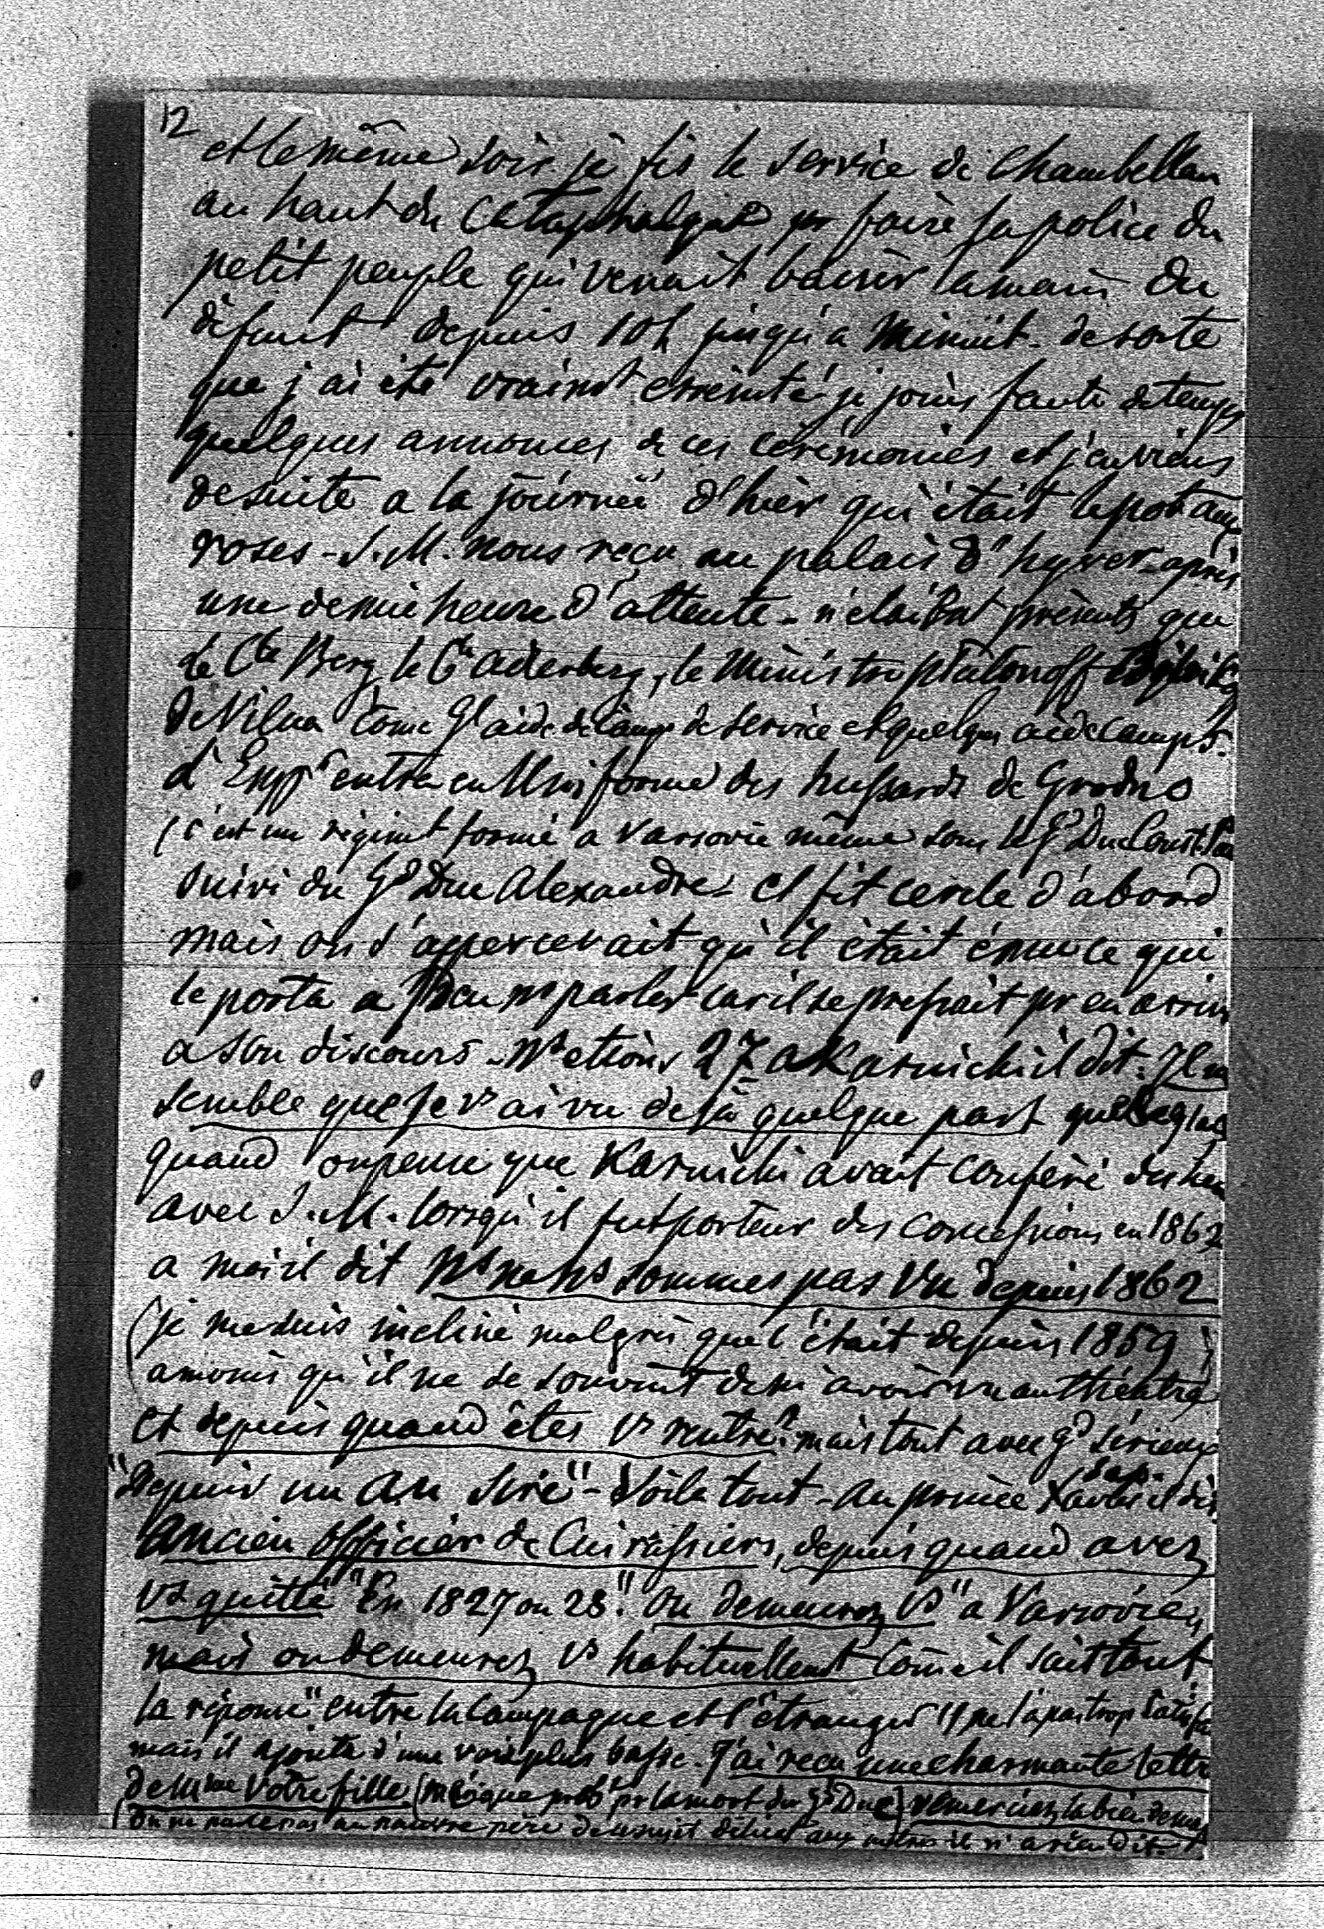 12
et le même soir je fis le service de Chambellan
au haut du Cataphalque pr faire la police du
petit peuple qui venait baiser la main du
défunt depuis 10h jusqu'a Minuit - de sorte
que j'ai été vraimt éreinté je joins faute de temps
quelques annonces de ces cérémonies et j'en viens
de suite a la journée d'hier qui était le pot aux
roses - S.M. nous reçu au palais d'hyver - après
une demie heure d'attente - n'étaient présents que
le Cte Berg le Cte Adlerberg, le Ministre Platonoff
de Vilna come Gl aide de camp de service et quelques aide camps.
L'Empr entra en Uniforme des hussards de Grodno
(c'est un régimt formé a Varsovie même sous le Gd Duc Const.
suivi du Gd Duc Alexandre - et fit cercle d'abord
mais on s'appercevait qu'il était ému ce qui
le porta a peu ns parler car il se pressait pr en arriver
a son discours - Ns etions 27 a Karnicki il dit: Il me
semble que je vs ai vu déjà quelque part
quand on pense que Karnicki avait conféré des heu
avec S.M. lorsqu'il fut porteur des concessions en 1862
a moi il dit Ns ne ns sommes pas vu depuis 1862
(je me suis incliné malgré que c'était depuis 1859
amoins qu'il ne se souvint de m'avoir vu au théatre)
et depuis quand êtes vs rentré? mais tout avec gd sérieux
"Depuis un an Sire" - Voila tout - au prince Xavier Sap. il dit
Ancien officier de Cuirassiers, depuis quand avez
vs quitté "En 1827 ou 28." ou demeurez vs "a Varsovie"
mais ou demeurez vs habituellemt Come il sait tout
la réponse "entre la Campagne et l'étranger" ne l'a pas trop satisfa
mais il ajouta d'une voix plus basse. J'ai reçu une charmante lettre
de Mme Votre fille (            pr la mort du Gd Duc) remerciez la bien de ma
(On ne                pauvre père de ce sujet                 aux autres il n'a rien dit.